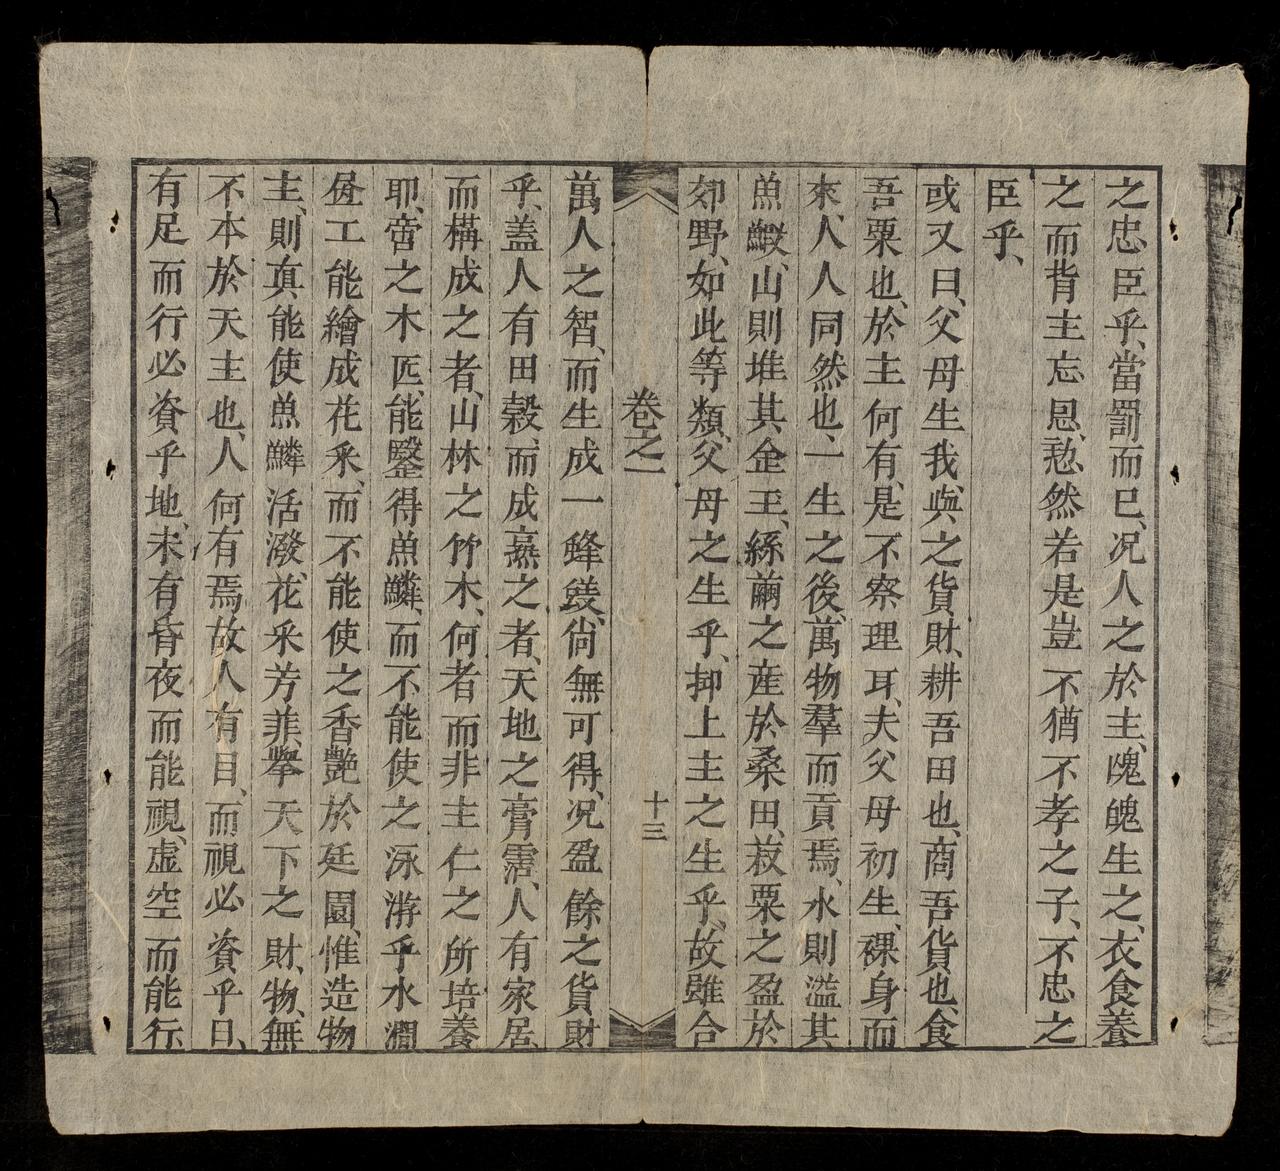 之忠臣乎、當罰而已、况人之於主、䰟魄生之、衣食養
之而背主忘恩、恝然若是、豈不猶不孝之子、不忠之
臣乎、
或又曰、父母生我、與之貨財、耕吾田也、商吾貨也、食
吾粟也、於主何有、是不察理耳、夫父母初生、裸身而
來、人人同然也、一生之後、萬物羣而貢焉、水則溢其
魚鰕、山則堆其金玉、絲繭之産於桑田、菽粟之盈於
郊野、如此等類、父母之生乎、抑上主之生乎、故雖合
卷之一
十三
萬人之智、而生成一蜂螘、尙無可得、况盈餘之貨財
乎、蓋人有田穀、而成熹之者、天地之膏霑、人有家居、
而構成之者、山林之竹木、何者而非主仁之所培養
耶、啻之木匠、能鑿得魚鱗、而不能使之泳游乎水澗
畫工能繪成花釆、而不能使之香艶於廷園、惟造物
主、則真能使魚鱗活潑、花釆芳菲、擧天下之財物、無
不本於天主也、人何有焉、故人有目、而視必資乎日、
有足而行必資乎地、未有昏夜而能視、虚空而能行